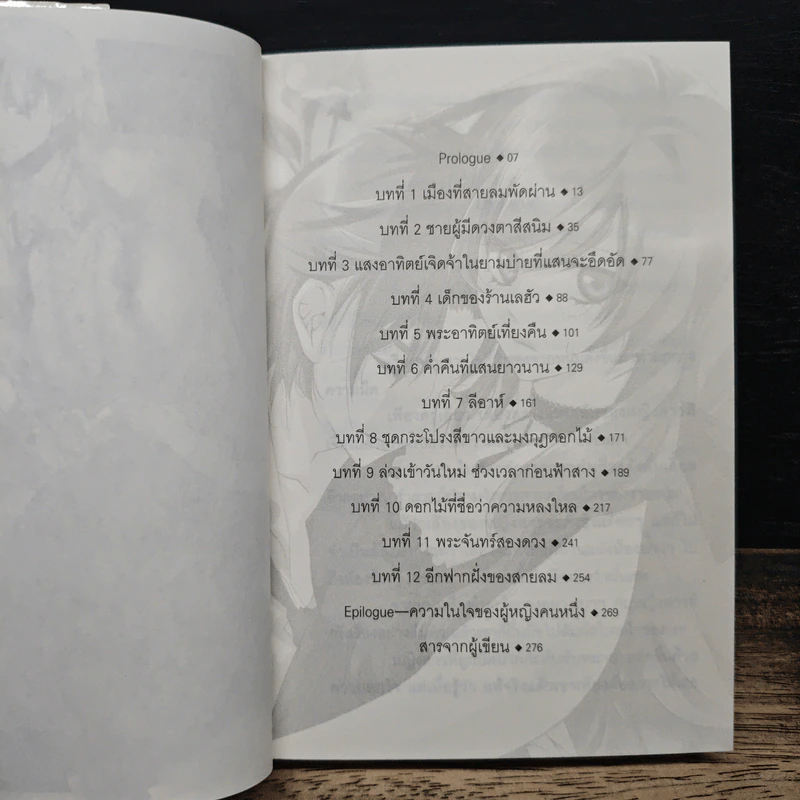 Prologue ◆ 07
บทที่ 1 เมืองที่สายลมพัดผ่าน ◆ 13
บทที่ 2 ชายผู้มีดวงตาสีสนิม ◆ 35
บทที่ 3 แสงอาทิตย์เจิดจ้าในยามบ่ายที่แสนจะอึดอัด ◆ 77
บทที่ 4 เด็กของร้านเลฮัว ◆ 88
บทที่ 5 พระอาทิตย์เที่ยงคืน ◆ 101
บทที่ 6 ค่ำคืนที่แสนยาวนาน ◆ 129
บทที่ 7 ลีอาห์ ◆ 161
บทที่ 8 ชุดกระโปรงสีขาวและมงกุฎดอกไม้ ◆ 171
บทที่ 9 ล่วงเข้าวันใหม่ ช่วงเวลาก่อนฟ้าสาง ◆ 189
บทที่ 10 ดอกไม้ที่ชื่อว่าความหลงใหล ◆ 217
บทที่ 11 พระจันทร์สองดวง ◆ 241
บทที่ 12 อีกฟากฝั่งของสายลม ◆ 254
Epilogue—ความในใจของผู้หญิงคนหนึ่ง ◆ 269
สารจากผู้เขียน ◆ 276